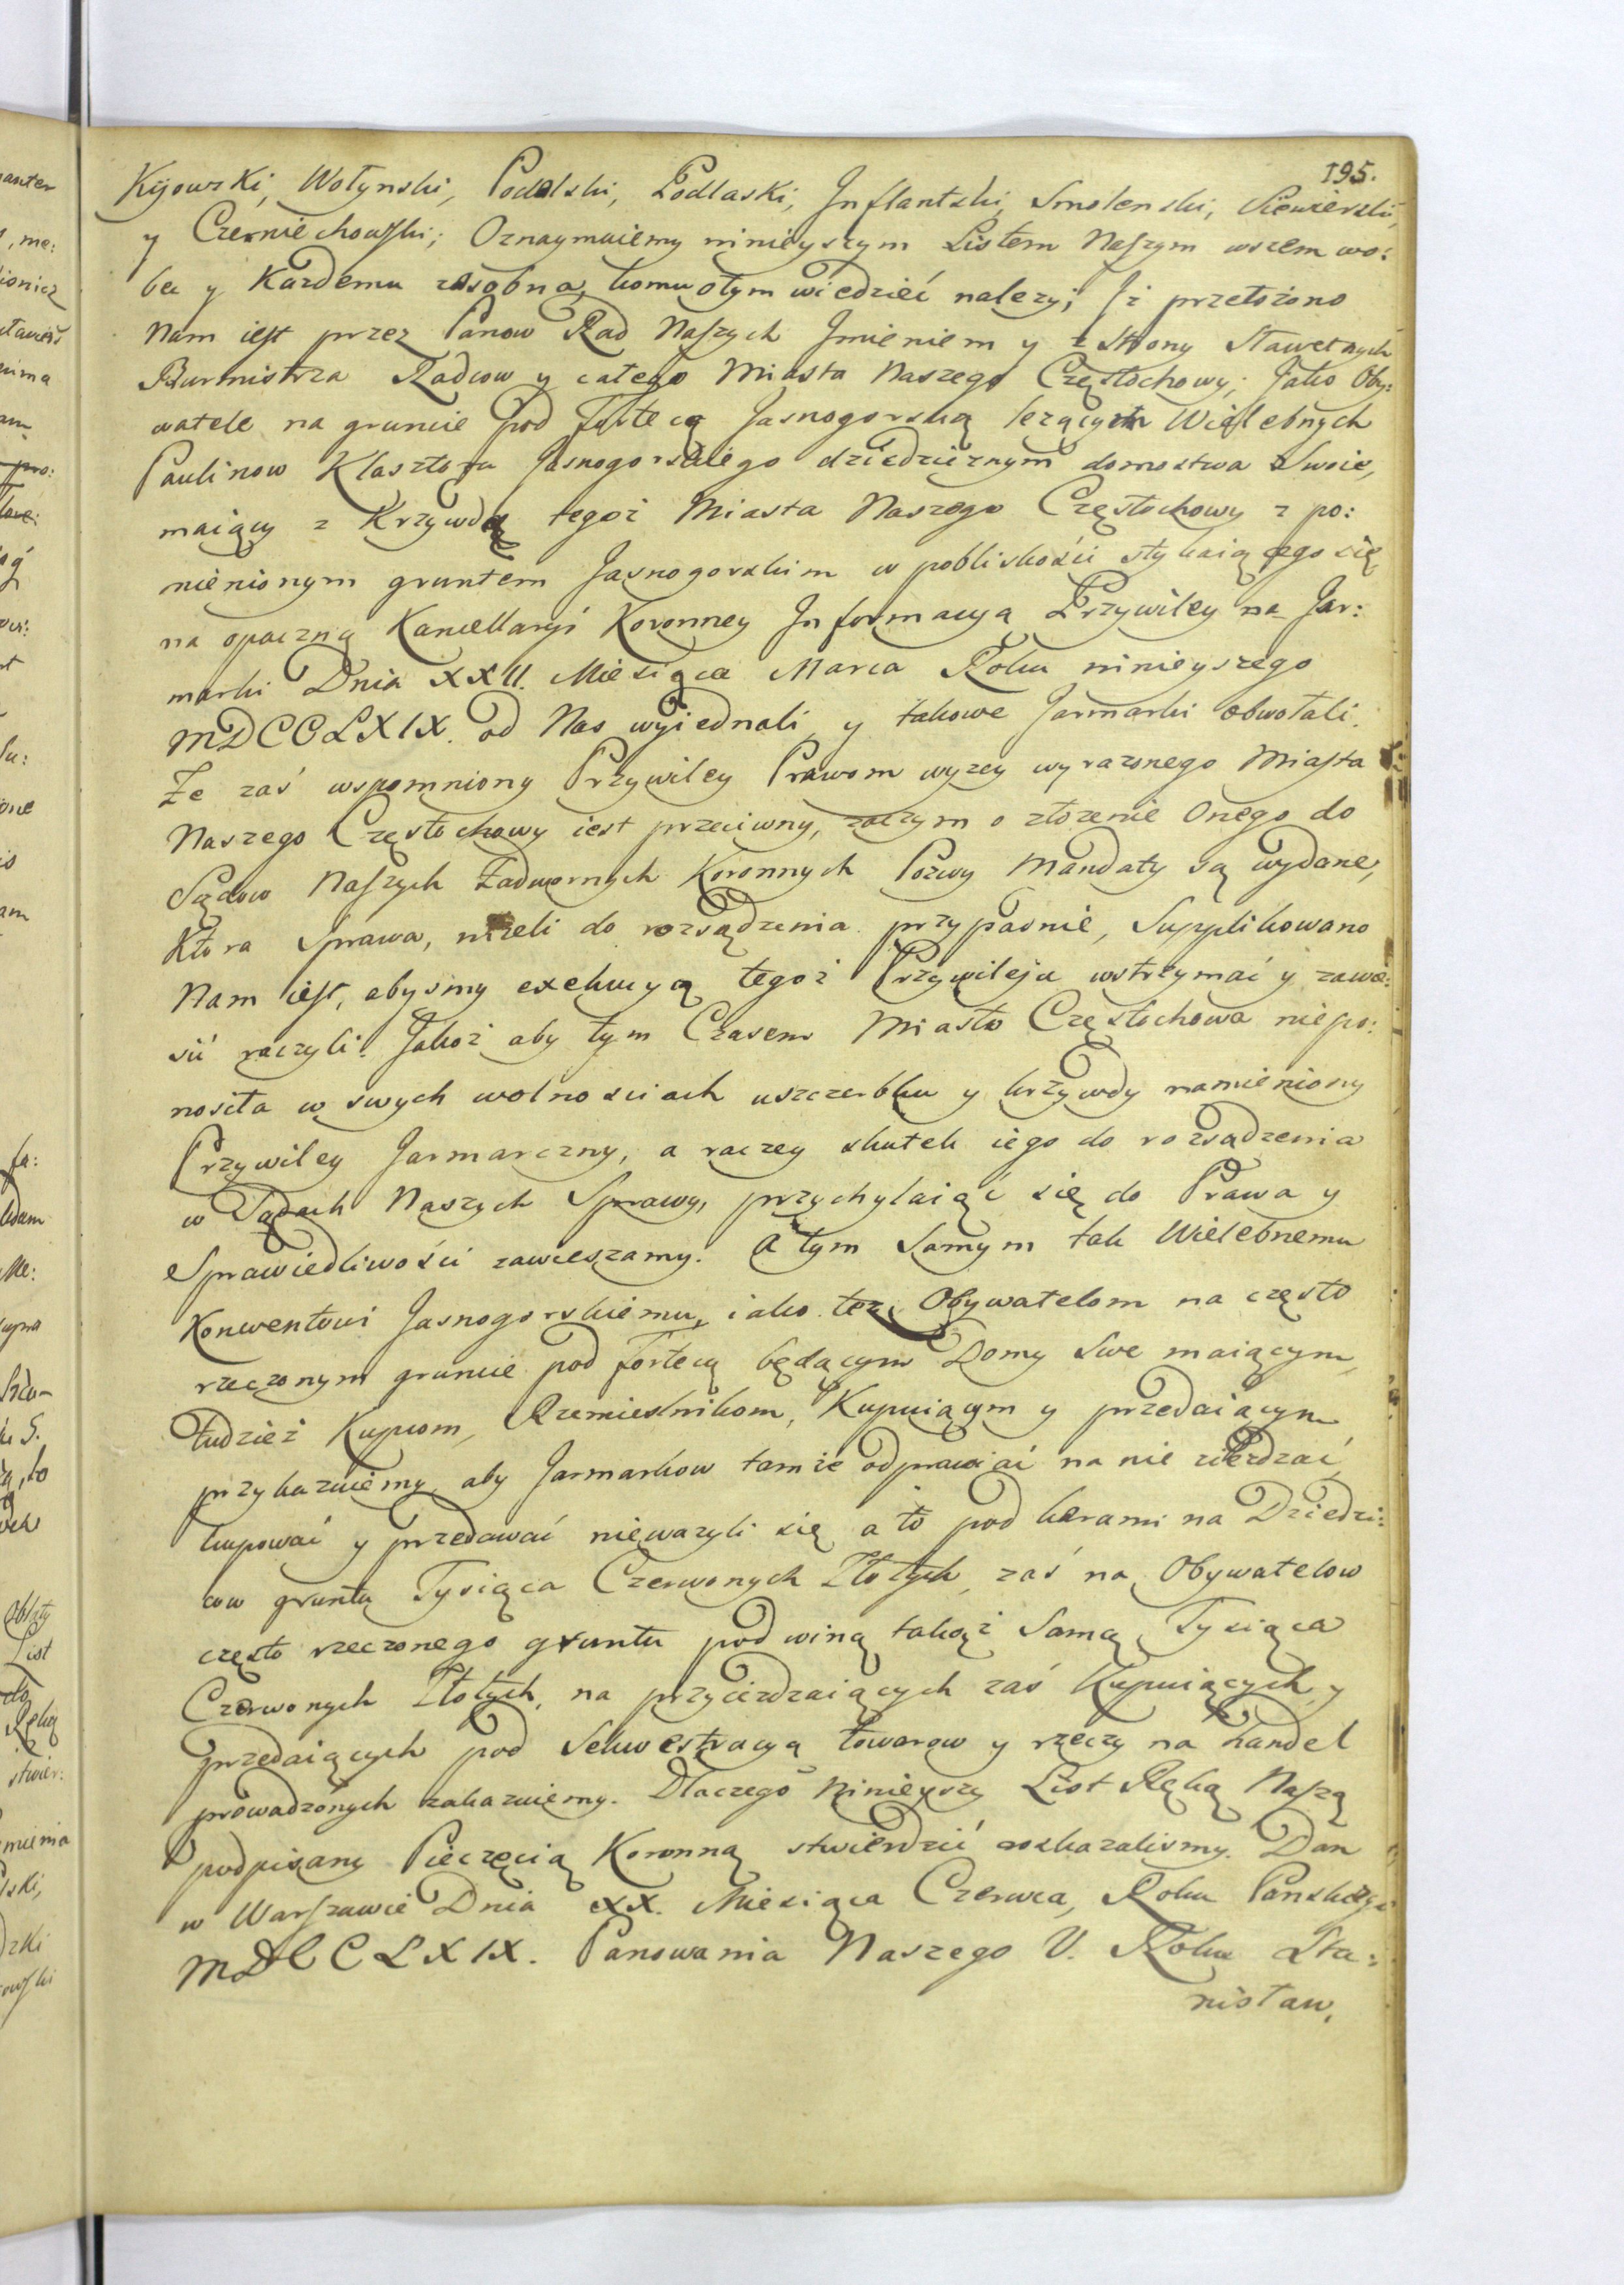 195.
Kijowski, Wołynski, Podolski, Podlaski, Inflantski, Smolenski, Siewierski,
y Czerniechowski; Oznaymuiemy ninieyszym Listem Naszym wszem wo:
bec y Kazdemu zosobna, komu otym wiedzieć nalezy; Iż przełożono
Nam iest przez Panow Rad Naszych Imieniem y z strony Sławetnych
Burmistrza Radcow y całego Miasta Naszego Częstochowy; Jako Oby:
watele na gruncie pod Fortecą Jasnogorską lezącym Wielebnych
Paulinow Klasztoru Jasnogorskiego dziedzicznym domostwa Swoie,
maiący z Krzywdą tegoż Miasta Naszego Częstochowy z po:
mienionym gruntem Jasnogorskim w pobliskości stykaiącego się
na opaczną Kancellaryi Koronney Informacyą Przywiley na Jar:
marki Dnia XXII. Miesiąca Marca Roku ninieyszego
MDCCLXIX. od Nas wyiednali y takowe Jarmarki obwołali.
Ze zaś wspomniony Przywiley Prawom wyzey wyrazonego Miasta
Naszego Częstochowy iest przeciwny, zaczym o złozenie Onego do
Sądow Naszych Zadwornych Koronnych Pozwy Mandaty są wydane,
Ktora Sprawa, nizeli do rozsądzenia przypadnie, Supplikowano
Nam iest, abysmy exekucyą tegoż Przywileju wstrzymać y zawie:
sić raczyli. Jakoż aby tym Czasem Miasto Częstochowa niepo:
nosiła w swych wolnosciach uszczerbku y krzywdy namieniony
Przywiley Jarmarczny, a raczey skutek iego do rozsądzenia
w Sądach Naszych Sprawy, przychylaiąć się do Prawa y
Sprawiedliwości zawieszamy. A tym Samym tak Wielebnemu
Konwentowi Jasnogorskiemu, iako tez Obywatelom na często
rzeczonym gruncie pod fortecą będącym Domy Swe maiącym,
tudzież Kupcom, Rzemieslnikom, Kupuiącym y przedaiącym
przykazuiemy, aby Jarmarkow tamże odprawiać na nie zierdzać,
kupować y przedawać niewazyli się a to pod karami na Dziedzi:
cow gruntu Tysiąca Czerwonych Złotych, zaś na Obywatelow
często rzeczonego gruntu pod winą takąż Samą Tysiąca
Czerwonych Złotych, na przyiezdzaiących zaś Kupuiących y
przedaiących pod Sekwestracyą towarow y rzeczy na handel
prowadzonych zakazuiemy. Dlaczego Ninieyszy List Ręką Naszą
podpisany Pieczęcią Koronną stwierdzić roskazalismy. Dan
w Warszawie Dnia XX. Miesiąca Czerwca, Roku Panskiego
MDCCLXIX. Panowania Naszego V. Roku Sta:
nisław,